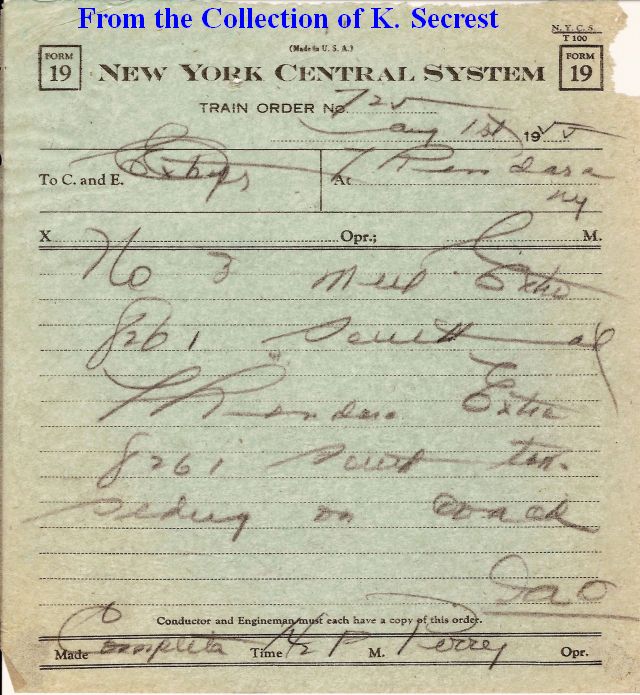 From the Collection of K. Secrest
N.Y.C.S.
T 100
(Made in U. S. A.)
FORM 19
NEW YORK CENTRAL SYSTEM
FORM 19
TRAIN ORDER No. 725
Aug 1st 1955
To C. and E. At Thendara
NY
X Opr.; M.
No 3 meet Extra
8261 South at
Thendara Extra
8261 South
siding on
Conductor and Engineman must each have a copy of this order.
Made Complete Time M. Perrey Opr.